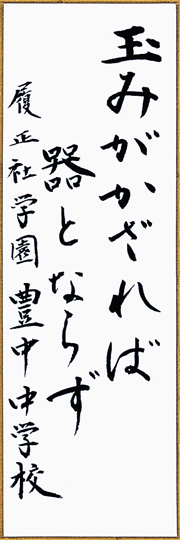 玉みがかざれば
器とならず
履正社学園豊中中学校